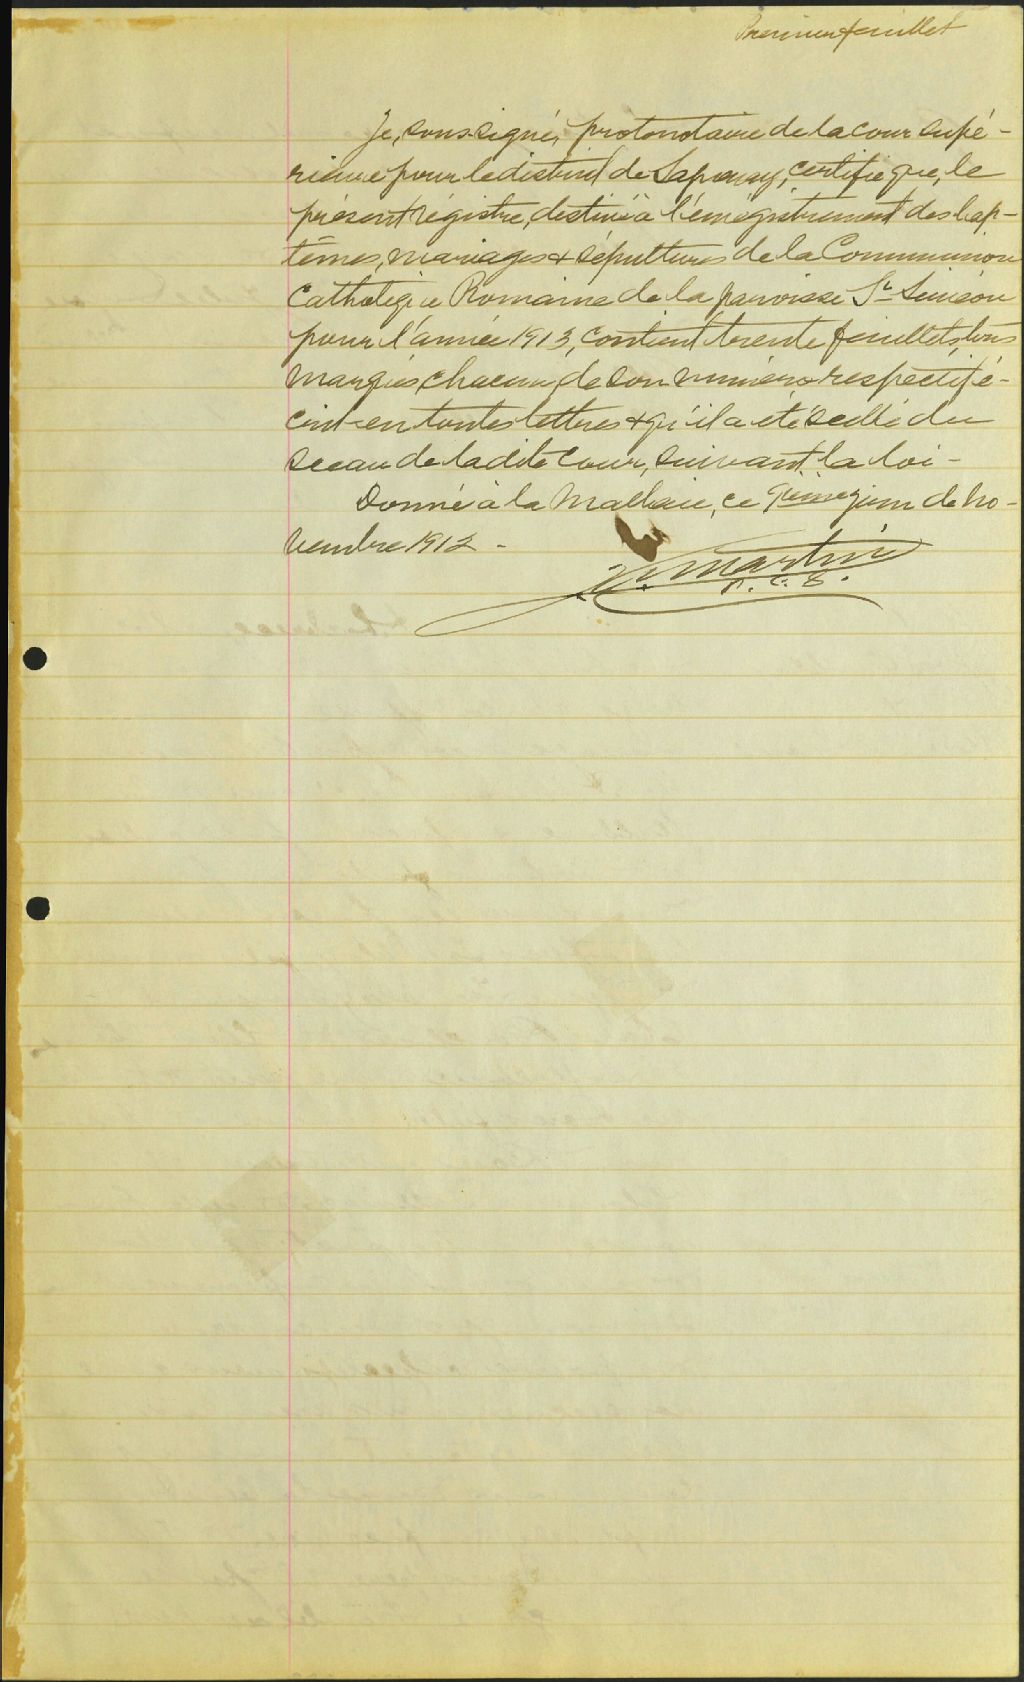 Premier feuillet
Je, soussigné, protonotaire de la cour supé-
rieure pour le district de Saguenay, certifie que, le
présent régistre, destiné à l'enregistrement des bap-
têmes, mariages & sépultures de la Communion
Catholique Romaine de la paroisse St Siméon
pour l'année 1913, contient trente feuillets, tous
marqués chacun de son numéro respectif é-
crit en toutes lettres & qu'il a été scellé du
sceau de ladite cour, suivant la loi -
Donné à la Malbaie, ce jour de no-
vembre 1912 -
Martin
P. C. S.